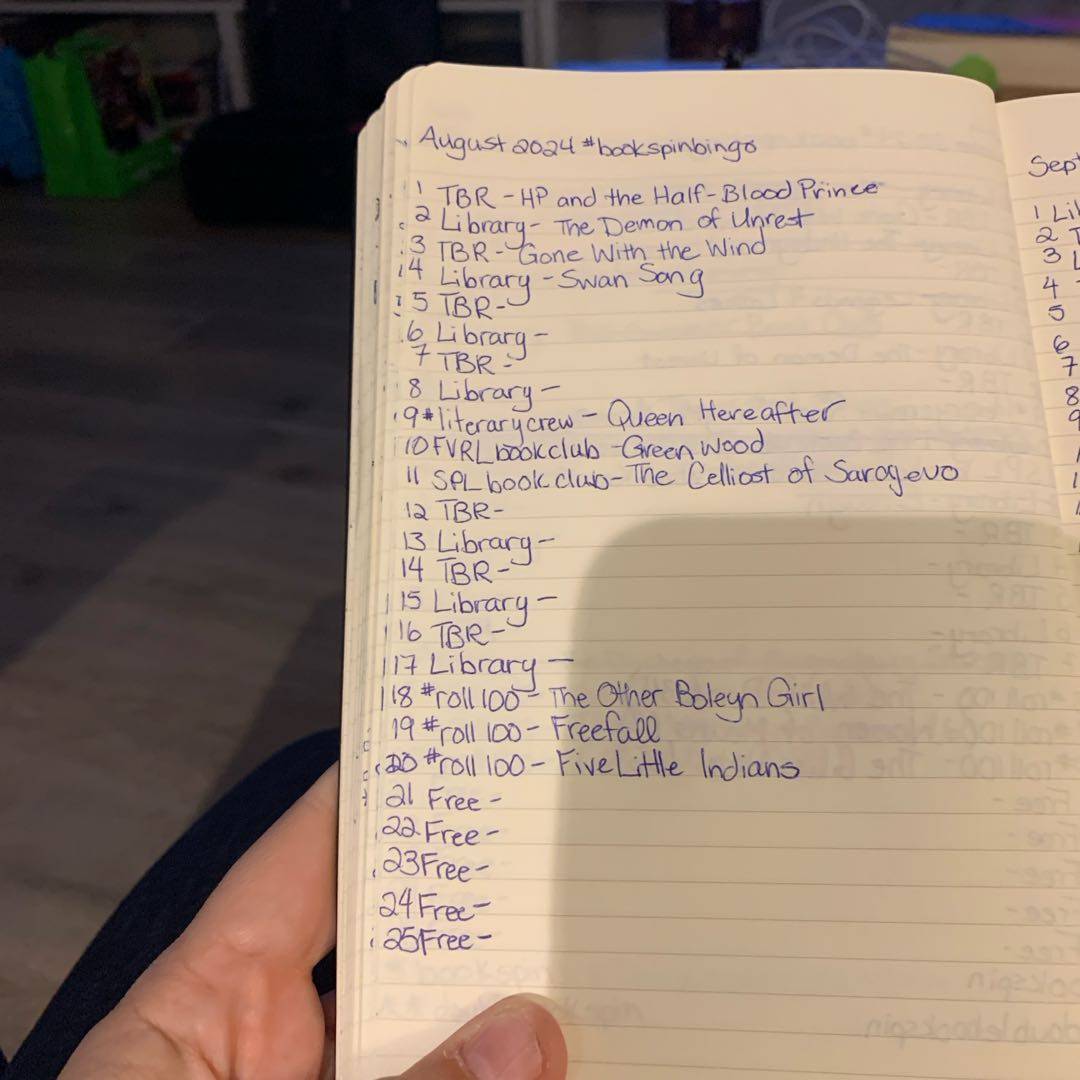 August 2024 #bookspinbingo
1 TBR - HP and the Half-Blood Prince
2 Library - The Demon of Unrest
3 TBR - Gone With the Wind
4 Library - Swan Song
5 TBR -
6 Library -
7 TBR -
8 Library -
9 #literarycrew - Queen Hereafter
10 FVRL bookclub - Greenwood
11 SPL bookclub - The Celliost of Saragevo
12 TBR -
13 Library -
14 TBR -
15 Library -
16 TBR -
17 Library -
18 #roll100 - The Other Boleyn Girl
19 #roll100 - Freefall
20 #roll100 - Five Little Indians
21 Free -
22 Free -
23 Free -
24 Free -
25 Free -
Sept
1
2
3
4
5
6
7
8
9